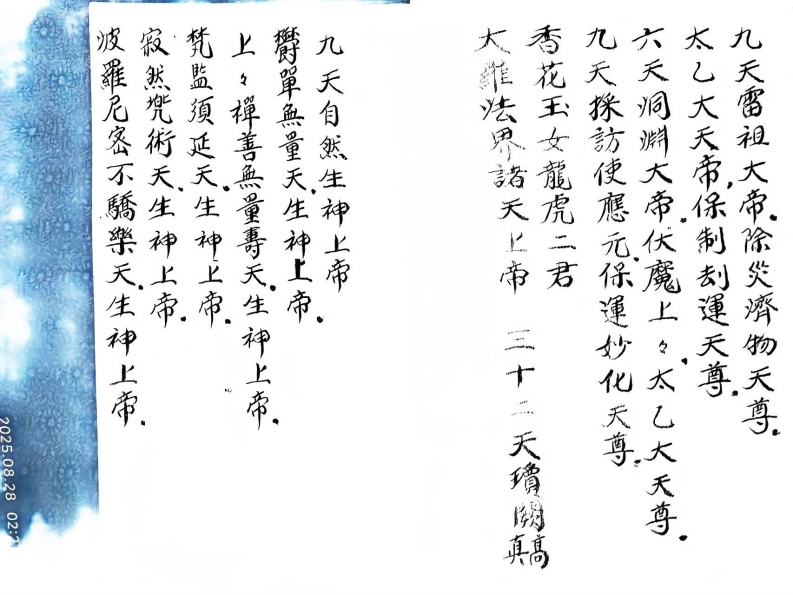 九天雷祖大帝.除災濟物天尊.
太乙大天帝.保制刦運天尊.
六天洞淵大帝.伏魔上々太乙大天尊.
九天採訪使應元.保運妙化天尊.
香花玉女龍虎二君
大羅法界諸天上帝 三十二天瓊闕高真
九天自然生神上帝
欝單無量天.生神上帝.
上々禪善無量壽天.生神上帝.
梵監須延天.生神上帝.
寂然兠術天.生神上帝.
波羅尼密不驕樂天.生神上帝.
2025.08.28 02: